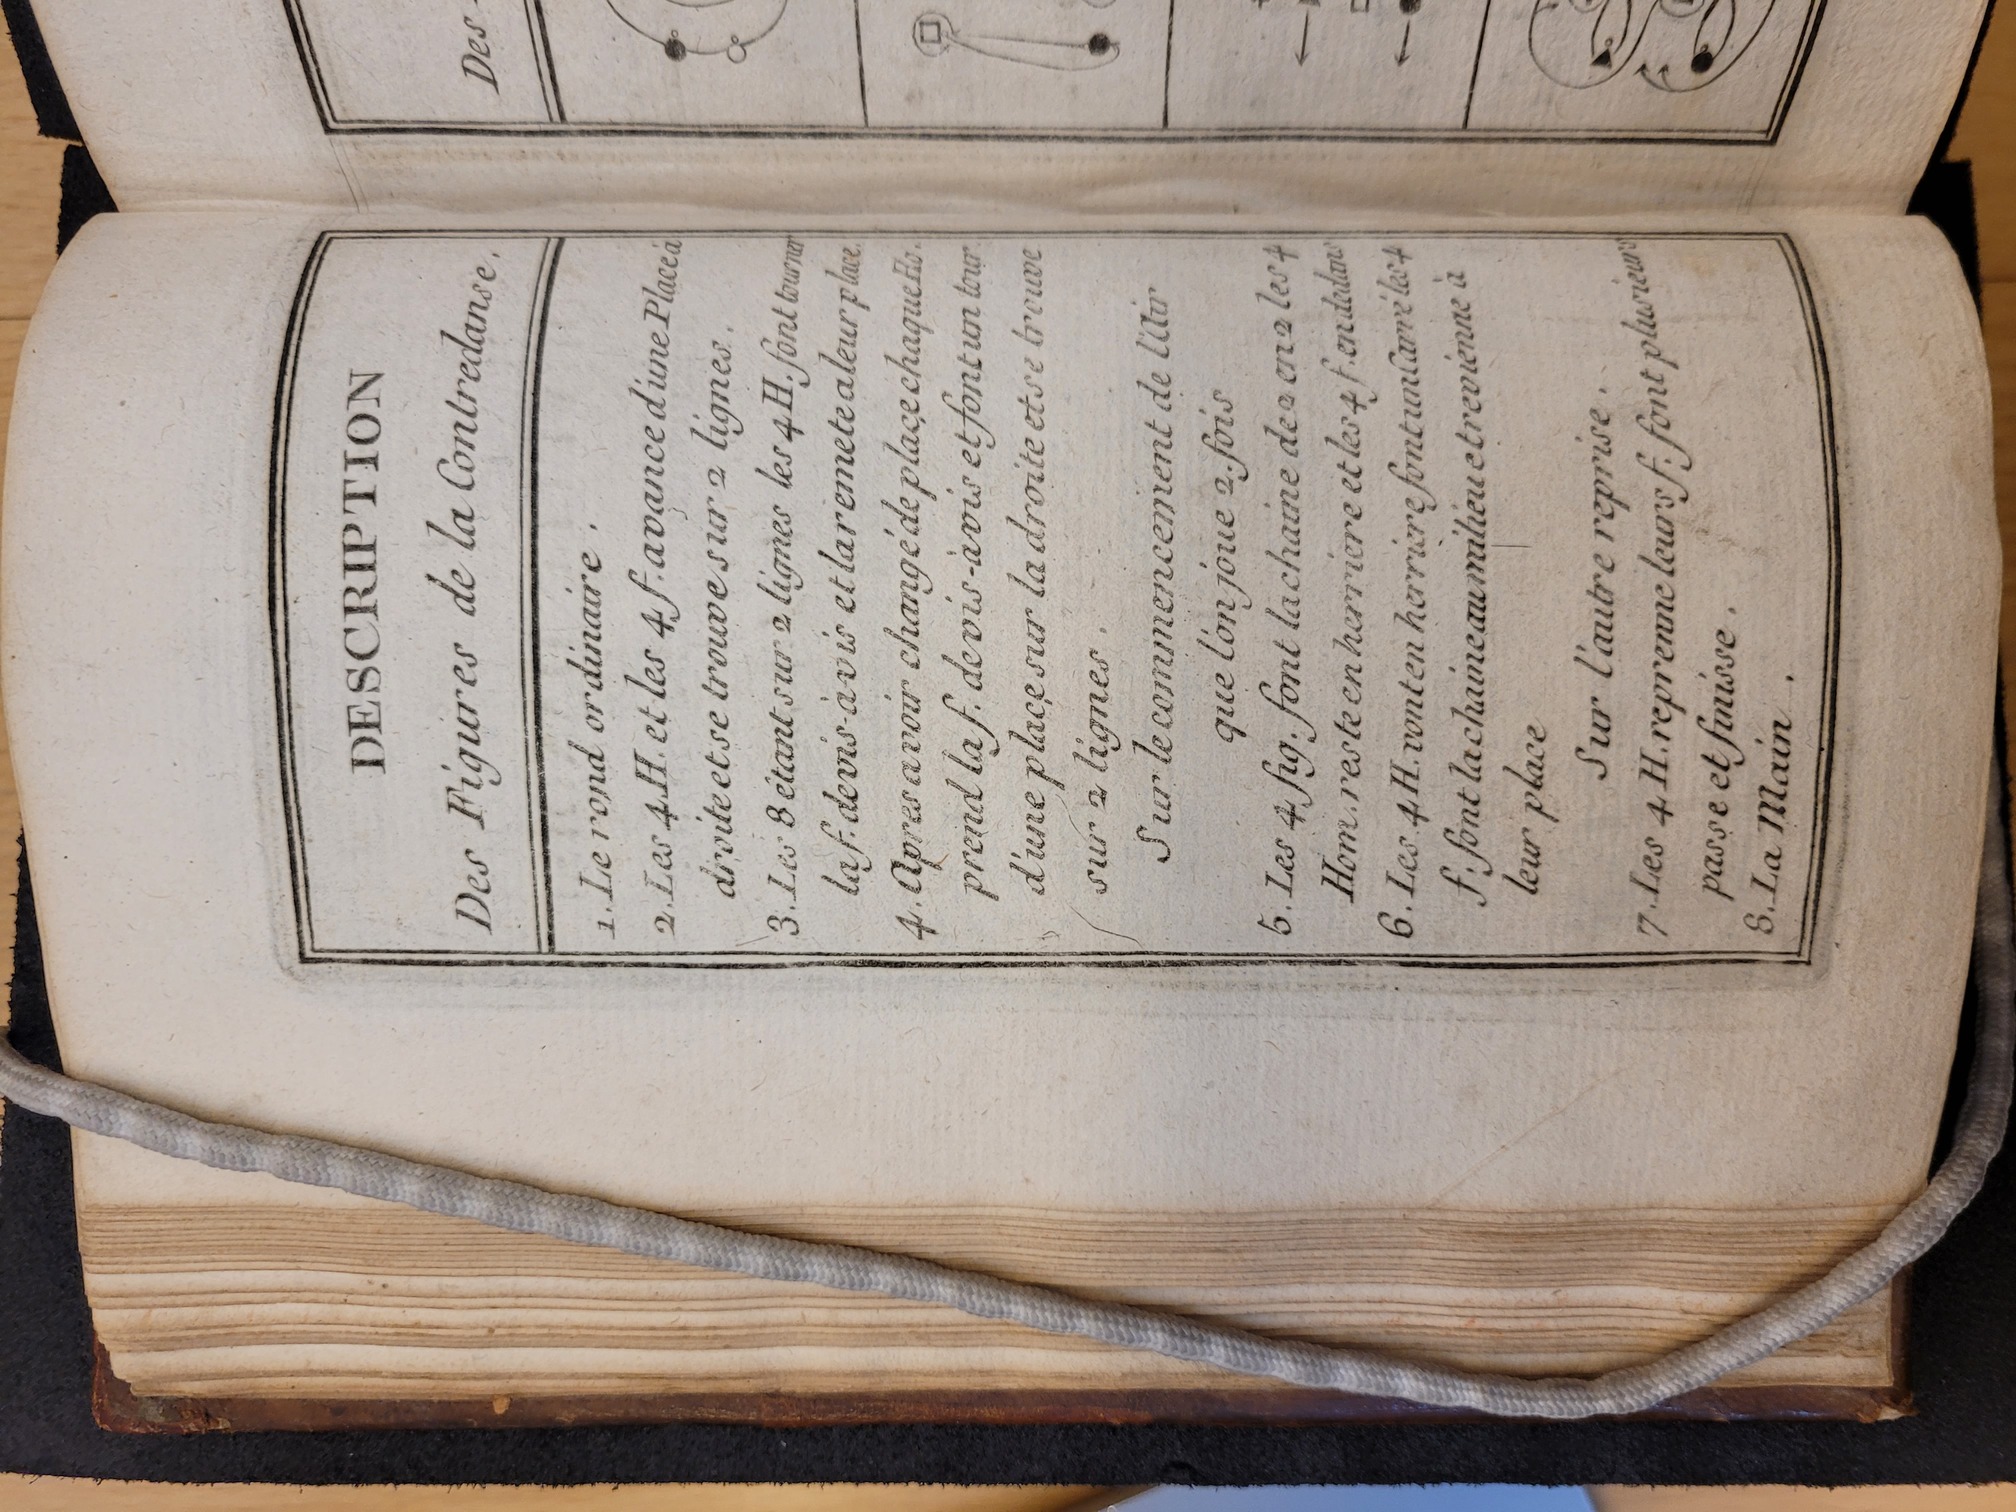 DESCRIPTION
Des Figures de la Contredanse.
1. Le rond ordinaire.
2. Les 4 H. et les 4 f. avance d'une Place a
droite et se trouve sur 2 lignes.
3. Les 8 étant sur 2 lignes les 4 H. font tourner
la f. de vis-à vis et la remete a leur place.
4. Apres avoir changé de place chaque
prend la f. de vis-à vis et font un tour
d'une place sur la droite et se trouve
sur 2 lignes.
Sur le commencement de l'Air
que l'on joue 2. fois
5. Les 4 fig. font la chaine de 2 en 2 les 4
Hom. reste en herriere et les 4 f. en dedans
6. Les 4 H. vont en herriere font un Carré les 4
f. font la chaine au milieu et revienne à
leur place
Sur l'autre reprise.
7. Les 4 H. reprenne leurs f. font plusieurs
passe et finisse.
8. La Main.
Des